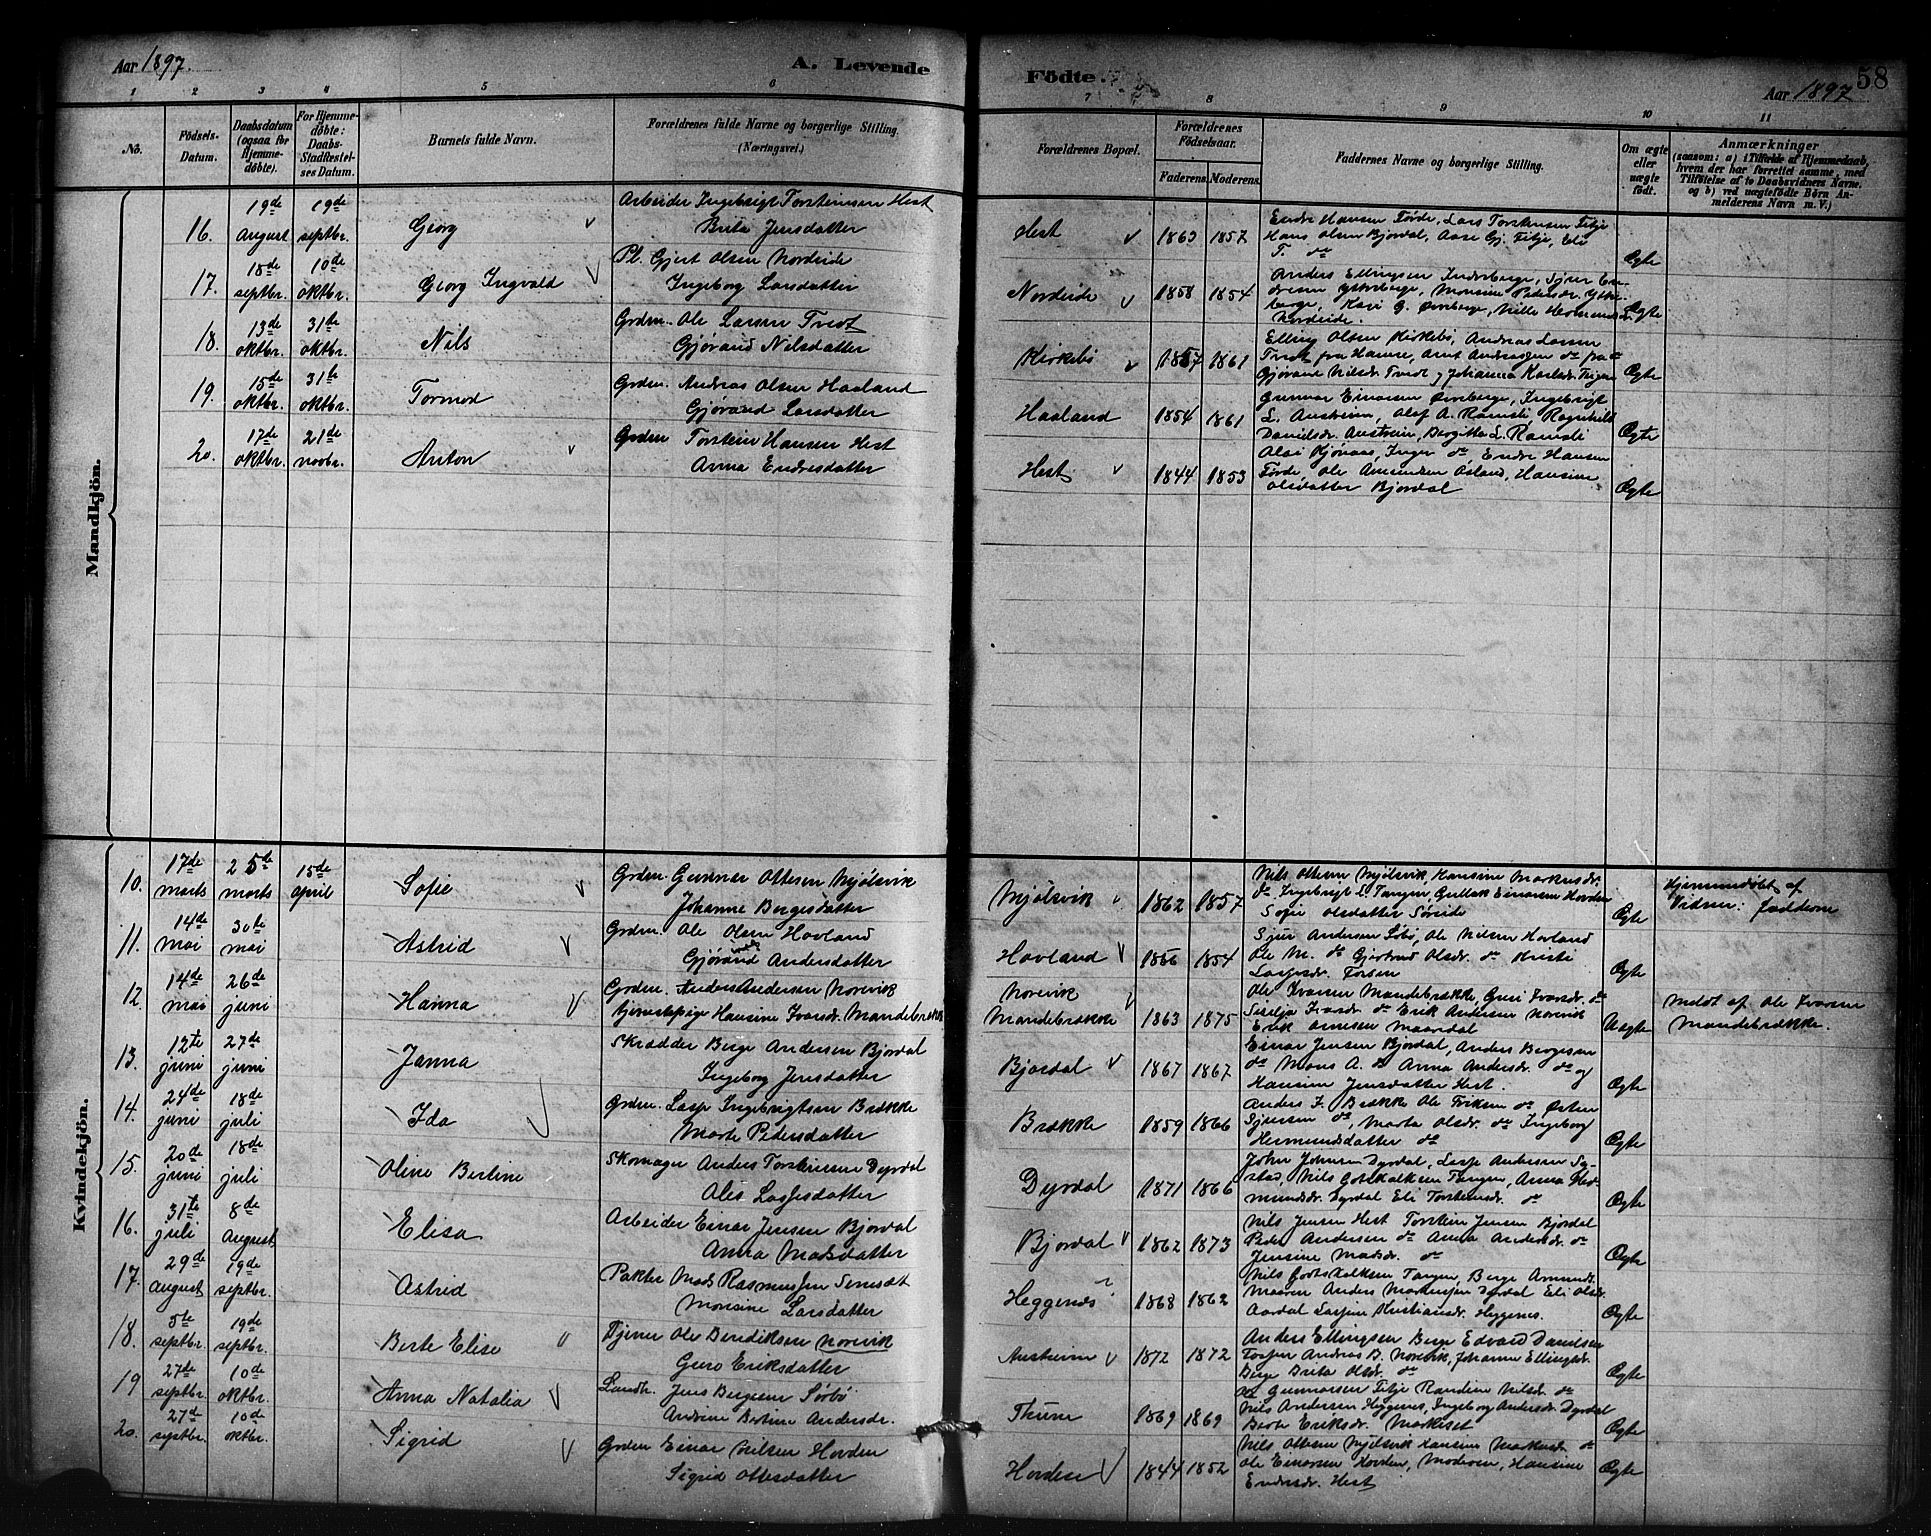 Aar 1897.
A. Levende
Födte.
Aar 1897
58
1 2 3 4 5 6 7 8 9 10 11
No.
Födsels-Datum.
Daabsdatum (ogsaa for Hjemme-döbte).
For Hjemme-döbte: Daabs-Stadfæstel-ses Datum.
Barnets fulde Navn.
Forældrenes fulde Navne og borgerlige Stilling. (Næringsvei.)
Forældrenes Bopæl.
Forældrenes Födselsaar.
Faderens. Moderens.
Faddernes Navne og borgerlige Stilling.
Om ægte eller uægte födt.
Anmærkninger
(saasom: a) i Tilfælde af Hjemmedaab, hvem der har forrettet samme, med Tilföielse af to Daabsvidners Navne. og b) ved uægtefödte Börn An-melderens Navn m. V.)
Mandkjön.
16. 19de August 19de septbr. Georg
Arbeider Ingebrigt Torsteinsen Hest
Brita Jensdatter
Hest 1863 1857
Endre Hansen Förde, Lars Torsteinsen Fitje
Hans Olsen Bjordal, Aase Gj. Fitje, Eli
T. do
Ægte
17. 18de septbr. 10de oktbr. Georg Ingvald
Pl. Gjert Olsen Nordeide
Ingeborg Larsdatter
Nordeide 1858 1854
Anders Ellingsen Inderberge, Sjur En-
dresen Ytterberge, Monsine Pedersdr. Ytter-
berge, Kari G. Övreberge, Nille
Nordeide.
Ægte
18. 13de oktbr. 31te oktbr. Nils
Grdm. Ole Larsen Tvedt
Gjørand Nilsdatter
Kirkebö 1857 1861
Elling Olsen Kirkebö, Andreas Larsen
Tvedt fra Hamre, Arnt Andreassen do
Gjörand Nilsdr. Tvedt og Johanna Karlsdr.
Ægte
19. 15de oktbr. 31te oktbr. Tormod
Grdm. Andreas Olsen Haaland
Gjørand Larsdatter
Haaland 1854 1861
Gunnar Einarsen Övreberge, Ingebrigt
L. Austreim, Olaf A. Ramsli, Ragnhild
Davidsdr. Austreim, Bergitte L. Ramsli
Ægte
20. 17de oktbr. 21de novbr. Anton
Grdm Torstein Hansen Hest
Anna Endresdatter
Hest 1844 1853
Olai Kjönaas, Inger do, Endre Hansen
Förde, Ole Amundsen Osland, Hansine
Olsdatter Bjordal
Ægte
Kvindekjön.
10. 17de marts 25de marts 15de april Sofie
Grdm. Gunnar Ottesen Mjölsvik
Johanne Bergesdatter
Mjölsvik 1862 1857
Nils Ottesen Mjölsvik, Hansine Markusdr.
do Ingebrigt L. Tangen, Gullak Einarsen Hovden
Sofie Olsdatter Söreide
Ægte
Hjemmedöbt af
Vidner: Fadderne
11. 14de mai 30te mai Astrid
Grdm. Ole Olsen Hovland
Gjørand Andersdatter
Hovland 1856 1854
Sjur Andersen Söbö, Ole Nilsen Hovland
Ole M. do Gjertrud Olsdr. do Kristi
Lassesdr. Torsen
Ægte
12. 14de mai 26de juni Hanna
Grdm. Anders Andersen Norevik
Tjenestepige Hansine Ivarsdr. Mandebrække
Norevik
Mandebrække 1863 1875
Ole Ivarsen Mandebrække, Guri Ivarsdr. do
Siselja Ivarsdr. do Erik Andersen Norevik
Erik Arnesen Maardal
Uægte
Meldt af Ole Ivarsen
Mandebrække.
13. 12te juni 27de juni Janna
Skrædder Berge Andersen Bjordal
Ingeborg Jensdatter
Bjordal 1867 1867
Einar Jensen Bjordal, Anders Bergesen
do Mons A. do Anna Andersdr. do og
Hansine Jensdatter Hest.
Ægte
14. 24de juni 18de juli Ida
Grdm. Lasse Ingebrigtsen Brække
Marte Pedersdatter
Brække 1859 1866
Anders I. Brække Ole Eriksen do Østen
Sjursen do, Marta Olsdr. do Ingeborg
Hermundsdatter do
Ægte
15. 20de juni 18de juli Oline Bertine
Skomager Anders Torsteinsen Dyrdal
Ales Lassesdatter
Dyrdal 1871 1866
John Johnsen Dyrdal, Lasse Andersen Sy-
stad, Nils Gotskalksen Tangen, Anna Her-
mundsdr. Dyrdal Eli Torsteinsdr. do
Ægte
16. 31te juli 8de August Elisa
Arbeider Einar Jensen Bjordal
Anna Madsdatter
Bjordal 1862 1873
Nils Jensen Hest Torstein Jensen Bjordal
Peder Andersen do Anna Andersdr. do
Jensine Madsdr. do
Ægte
17. 29de August 19de septbr. Astrid
Pakter Mads Rasmussen
Monsine Larsdatter
Heggenes 1868 1862
Nils Gotskalksen Tangen, Berge Amunds.
Maaren Anders Markussen Dyrdal Eli Olsdr.
Aardal Kristiansdr. Heggenes.
Ægte
18. 5te septbr. 19de septbr. Berte Elise
Tjener Ole Bendiksen Norevik
Guro Eriksdatter
Austreim 1872 1872
Anders Ellingsen Berge Edvard Davidsen
Torsen Andreas B. Norevik, Johanne Ellingsdr.
Berge Brita Olsdr. do
Ægte
19 27de septbr. 10de oktbr. Anna Natalia
Landh. Jens Bergesen Sörbö
Andrine Bertine Andersdr.
Thune 1869 1869
Ole Gunnarsen Fitje Randine Nilsdr. do
Nils Andersen Heggenes, Ingeborg Andersdr. Dyrdal
Berta Eriksdr. Markeset
Ægte
20. 27de septbr. 10de oktbr. Sigrid
Grdm Einar Nilsen Hovden
Sigrid Ottesdatter
Hovden 1844 1852
Nils Ottesen Mjölsvik Hansine Markusdr. do
Ole Einarsen Hovden, Moderen, Hansine
Endresdr. Hest
Ægte